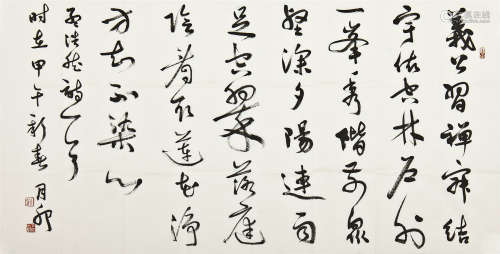 義公習禪寂結
宇依空林户外
一峯秀階前眾
壑深夕陽連雨
足空翠落庭
陰看取蓮花淨
方知不染心
孟浩然詩一首
时在甲午新春月